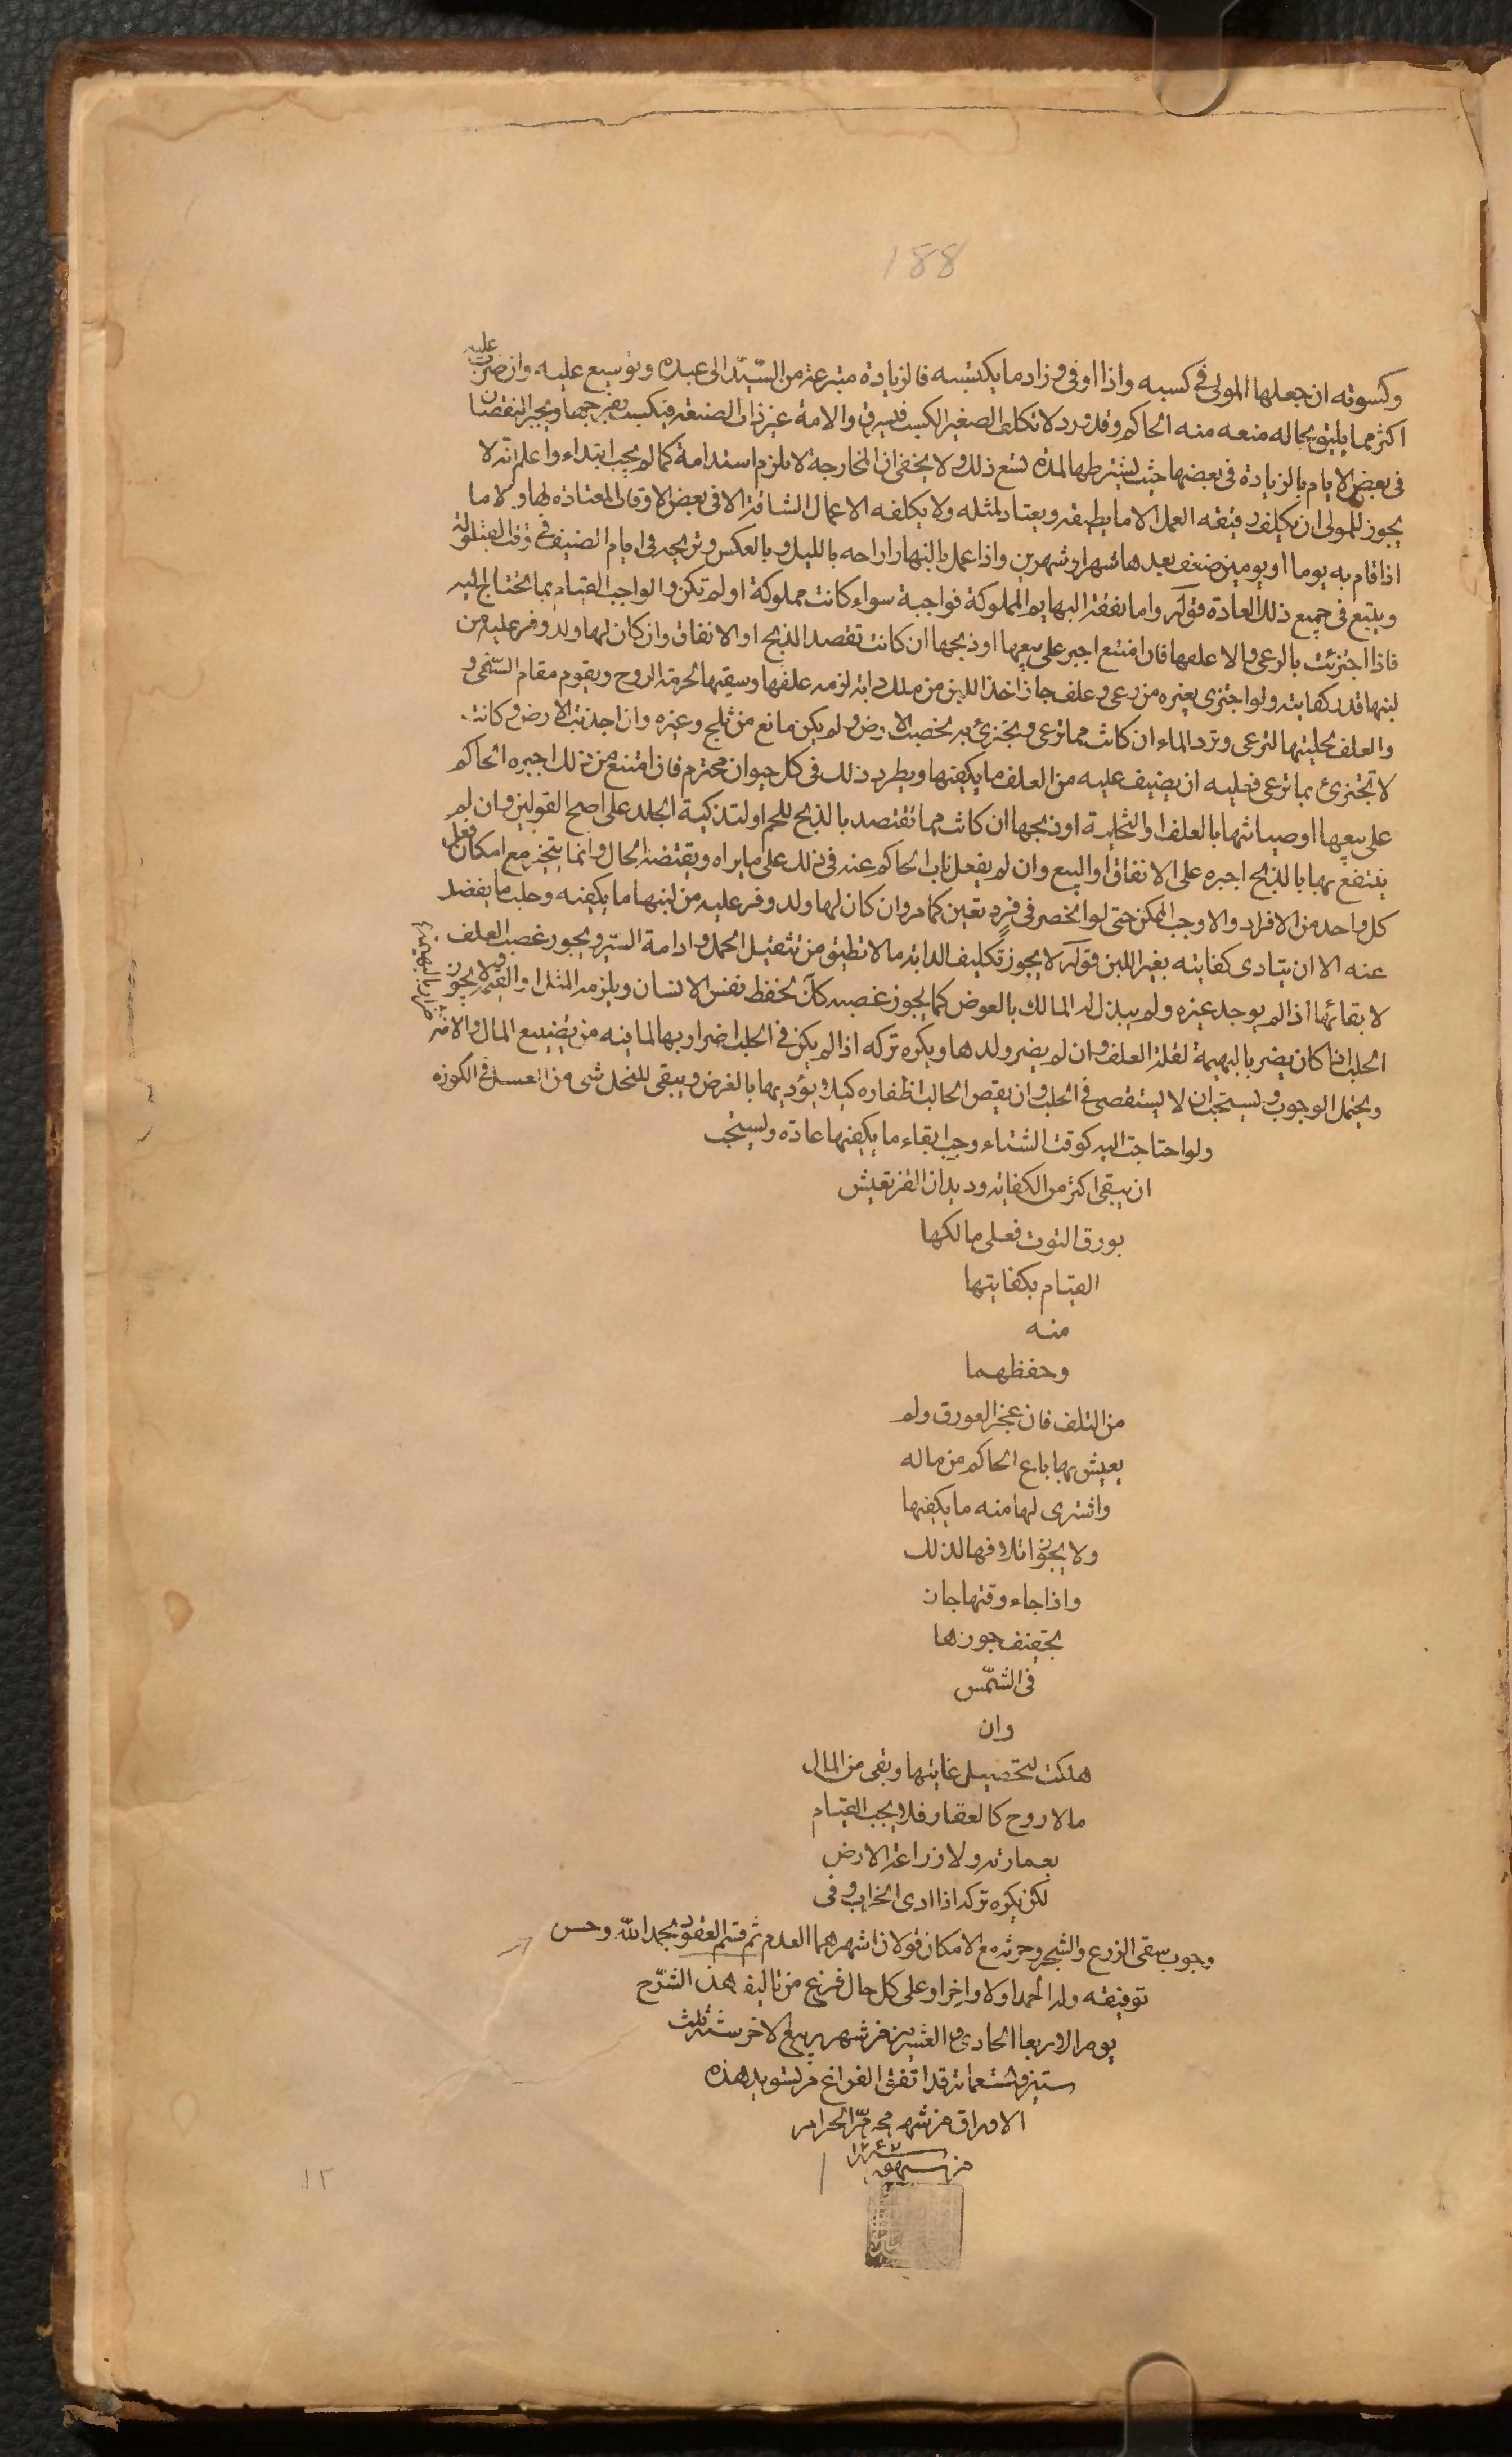 188
وكسوته ان جعلها المولى في كسبه واذا اوفى وزاد ما يكتسبه فالزيادة متبرعة من السيّد الى عبده وتوسيع عليه وان ضرب عليه
اكثر مما يليق بحاله منعه منه الحاكم وقد ورد لا تكلف الصغير الكسب فيسرق والامة غير ذات الصنعة فتكسب بفرجها ويجبر النقصان
في بعض الايام بالزيادة في بعضها حيث يشترطها لمدة تسع ذلك ولا يخفى ان المخارجة لا يلزم استدامة كما لم يجب ابتداء واعلم انه لا
يجوز للمولى ان يكلف رقيقه العمل الا ما يطيقه ويعتاد لمثله ولا يكلفه الاعمال الشاقة الا في بعض الاوقات المعتادة لها ولا ما
اذا قام به يوما او يومين ضعف بعدها شهرا وشهرين واذا عمل بالنهار اراحه بالليل وبالعكس وتريحه في ايام الصيف في وقت القيلولة
ويتبع في جميع ذلك العادة قوله واما نفقة البهايم المملوكة فواجبة سواء كانت مملوكة او لم تكن والواجب القيام بما تحتاج اليه
فاذا اجتزئت بالرعي والا علفها فان امتنع اجبر على بيعها او ذبحها ان كانت تقصد الذبح او الانفاق وان كان لها ولد وفر عليه من
لبنها قدر كفايته ولو اجتزى بغيره من رعي وعلف جاز اخذ اللبن من ملك دابة لزمه علفها وسقيها لحرمة الروح ويقوم مقام السقي و
والعلف تخليتها لترعى وترد الماء ان كانت مما ترعى وتجتزئ به لخصب الارض ولم يكن مانع من ثلج وغيره وان اجذبت الارض وكانت
لا تجتزئ بما ترعى فعليه ان يضيف عليه من العلف ما يكفيها ويطرد ذلك في كل حيوان محترم فان امتنع من ذلك اجبره الحاكم
على بيعها او صيانتها بالعلف او التخلية او ذبحها ان كانت مما تقتصد بالذبح للحم او لتذكية الجلد على اصح القولين وان لم
ينتفع بها بالذبح اجبره على الانفاق او البيع وان لم يفعل ناب الحاكم عنه في ذلك على ما يراه ويقتضيه الحال وانما يتخير مع امكان فعل
كل واحد من الافراد والا وجب الممكن حتى لو انحصر في فرد تعين كما مر وان كان لها ولد وفر عليه من لبنها ما يكفيه وحلب ما يفضل
عنه الا ان يتادى كفايته بغير اللبن قوله لا يجوز تكليف الدابة ما لا تطيق من تثقيل الحمل وادامة السير ويجوز غصب العلف
لابقائها اذا لم يوجد غيره ولم يبذله المالك بالعوض كما يجوز غصبه لحفظ نفس الانسان ويلزمه المثل او القيمة ولا يجوز
الحلب اذا كان يضر بالبهيمة لقلة العلف وان لم يضر ولدها ويكره تركه اذا لم يكن في الحلب اضرار بها لما فيه من تضييع المال والاضرار بالبهيمة
ويحتمل الوجوب ويستحب ان لا يستقصى في الحلب وان يقص الحالب اظفاره كيلا يؤذيها بالقرض ويبقى للنحل شى من العسل في الكوزه
ولو احتاجت اليه كوقت الشتاء وجب ابقاء ما يكفيها عادة ويستحب
ان يبقى اكثر من الكفاية وديدان القز تعيش
بورق التوت فعلى مالكها
القيام بكفايتها
منه
وحفظهما
من التلف فان عجز العورق ولم
يعيش بها باع الحاكم من ماله
واشترى لها منه ما يكفيها
ولا يجوز اتلافها لذلك
واذا جاء وقتها جاز
تجفيف جوزها
في الشّمس
وان
هلكت لتحصيل غايتها وبقى من المال
ما لا روح كالعقار فلا يجب القيام
بعمارته ولا زراعة الارض
لكن يكره تركه اذا ادى الخراب وفى
وجوب سقى الزرع والشجر وحرثه مع الامكان قولان اشهرهما العدم ثم قسم العقود بحمد الله وحسن
توفيقه وله الحمد اولا واخرا وعلى كل حال فرغ من تاليف هذا الشرح
يوم الاربعا الحادي والعشرين من شهر ربيع الاخر سنة ثلث
ستين وتسعمائة قد اتفق الفراغ من تسويد هذه
الاوراق من شهر محرّم الحرام
من سنه ١٢٤٧
١٢